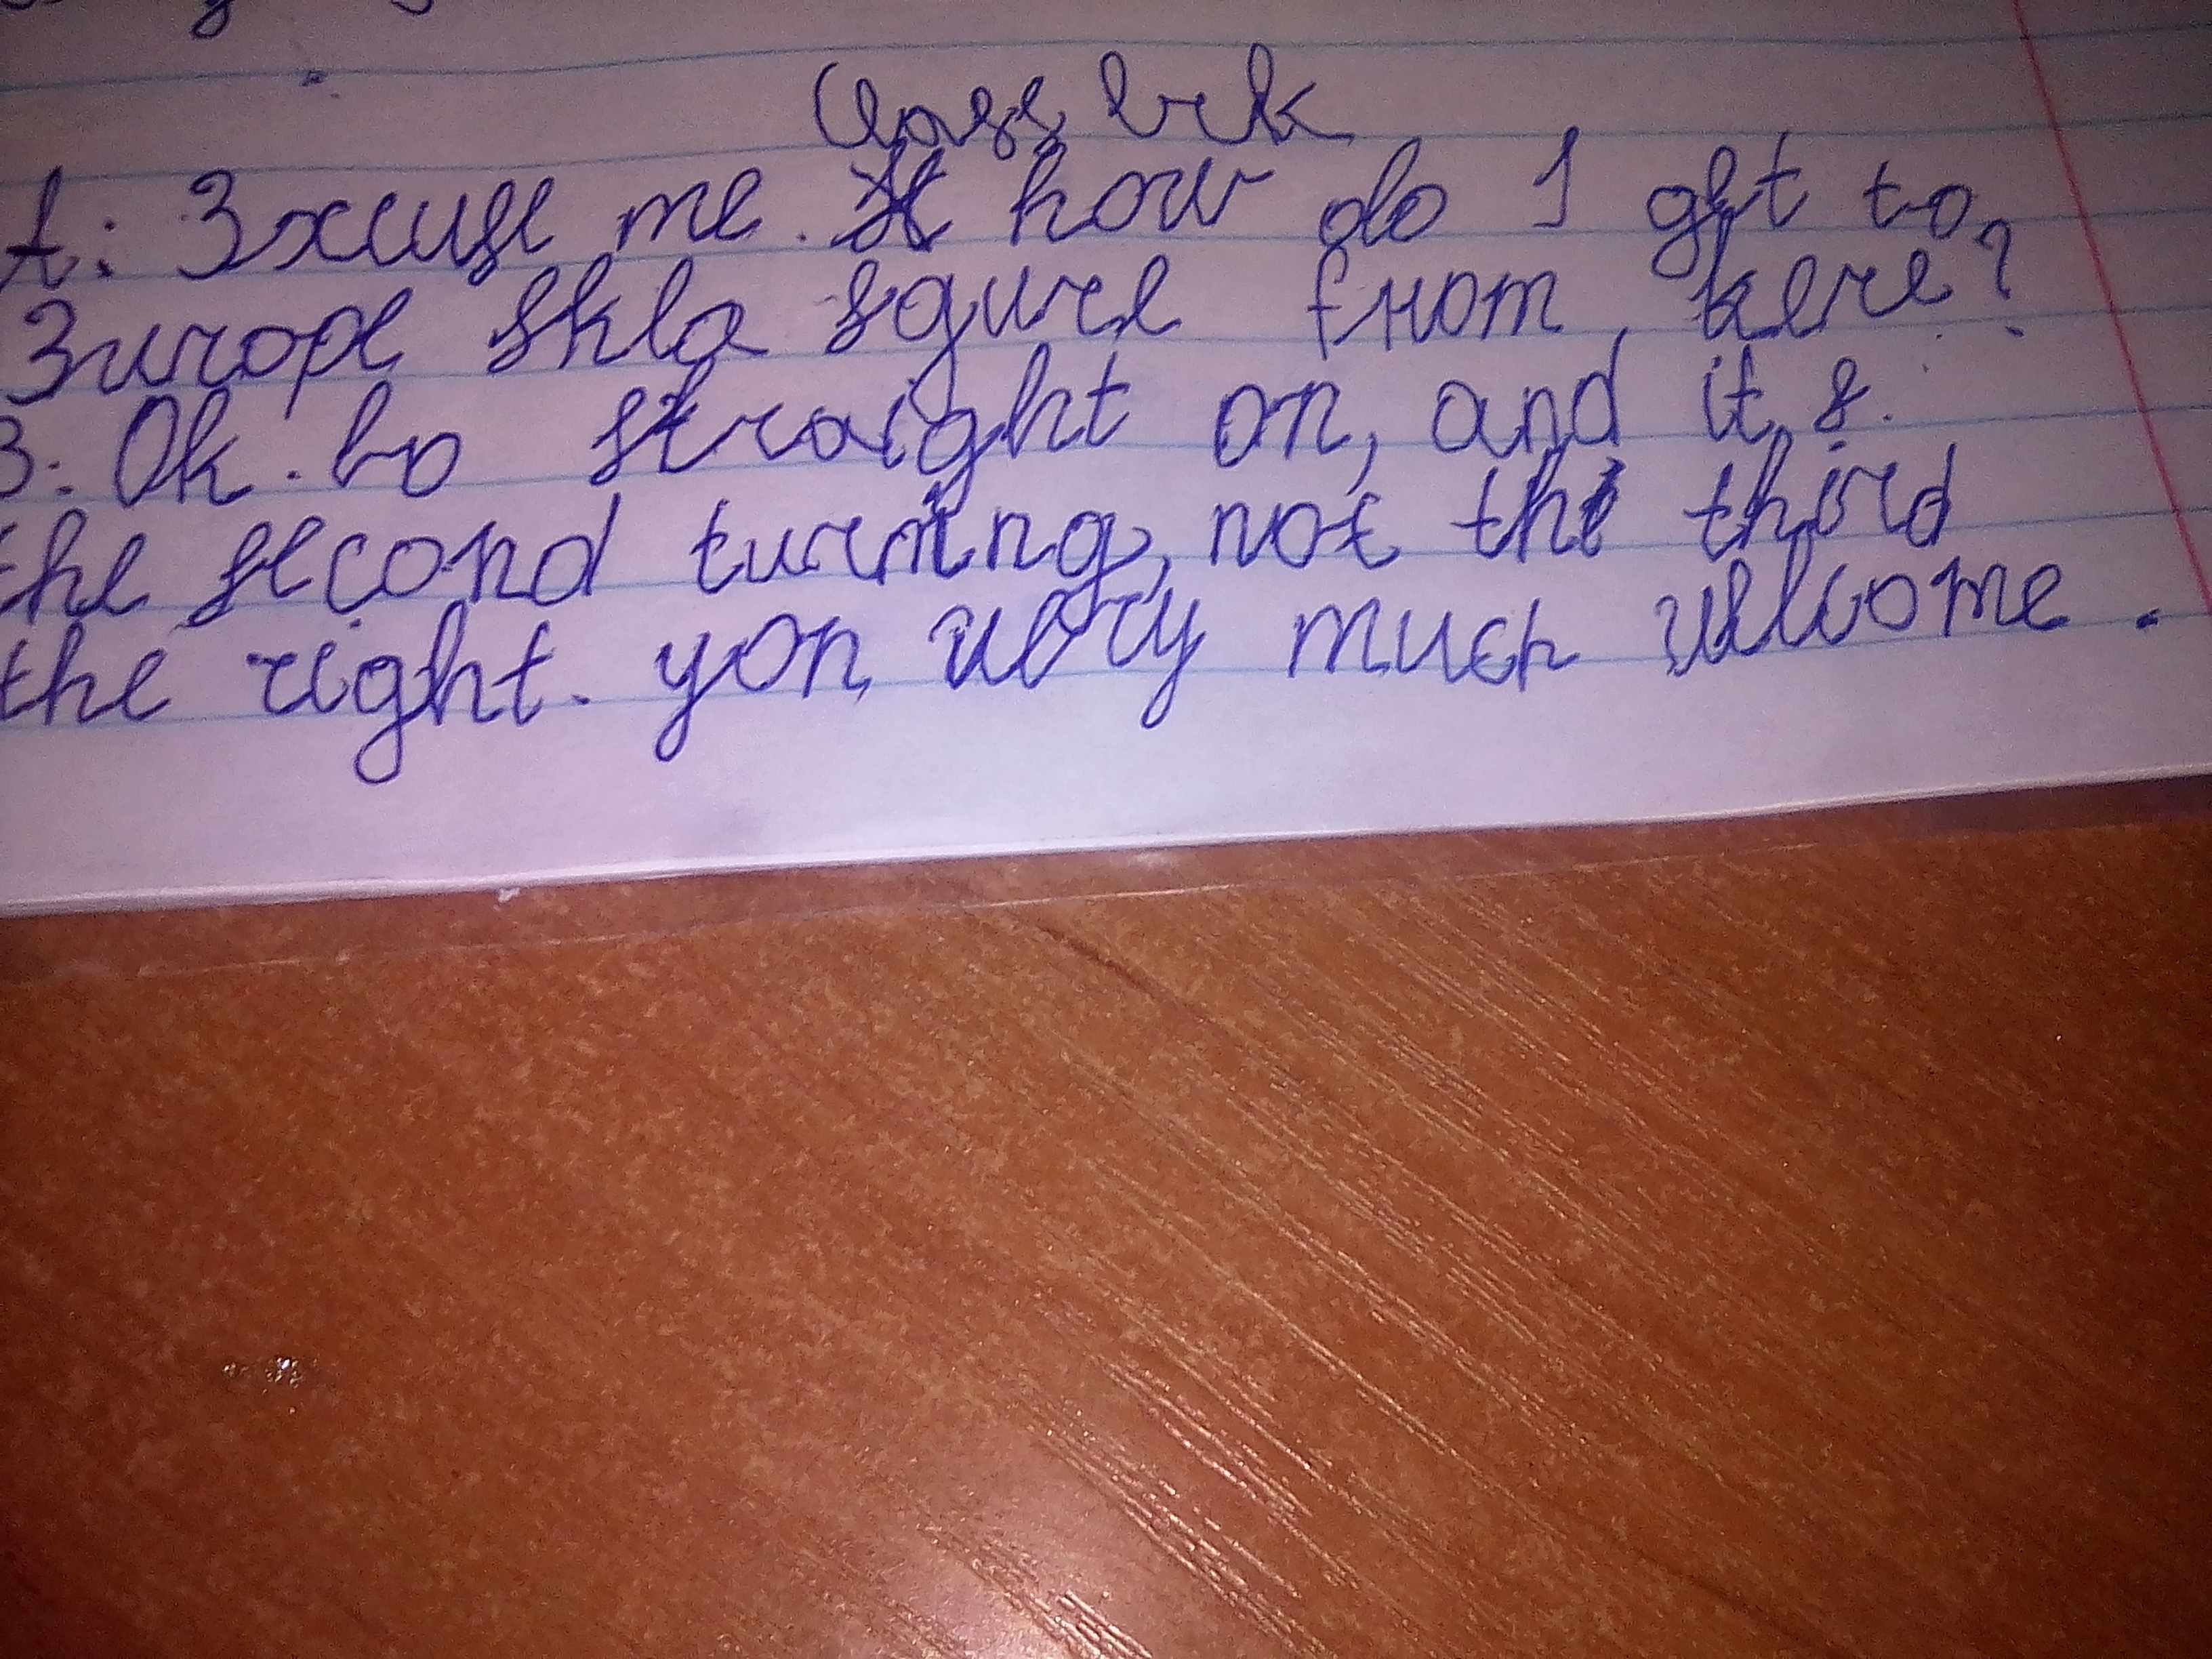 Class wrk
A: Excuse me. how do I get to
Europe skla squre from, here?
B: Ok. Go straight on, and it,s.
the second turning, not the third
the right. you very much welcome.